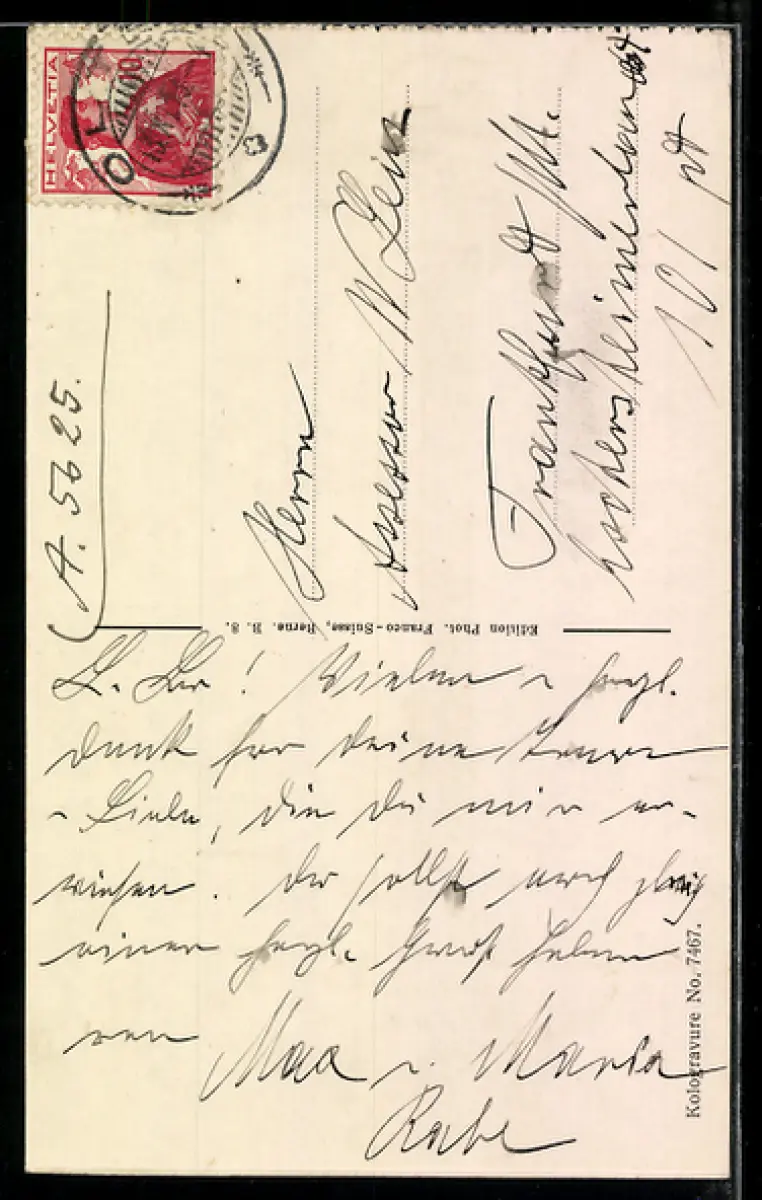 HELVETIA
10
A. 5625.
Herrn
Assessor W
Frankfurt
101 pt
Edition Phot. Franco-Suisse, Berne. B. S.
Vielen herzl.
Dank für deine Treue
Liebe, die du mir er-
wiesen. Du sollst auch gleich
einen herzl. Gruß haben
von Max u. Maria
Rabe
Kologravure No. 7467.